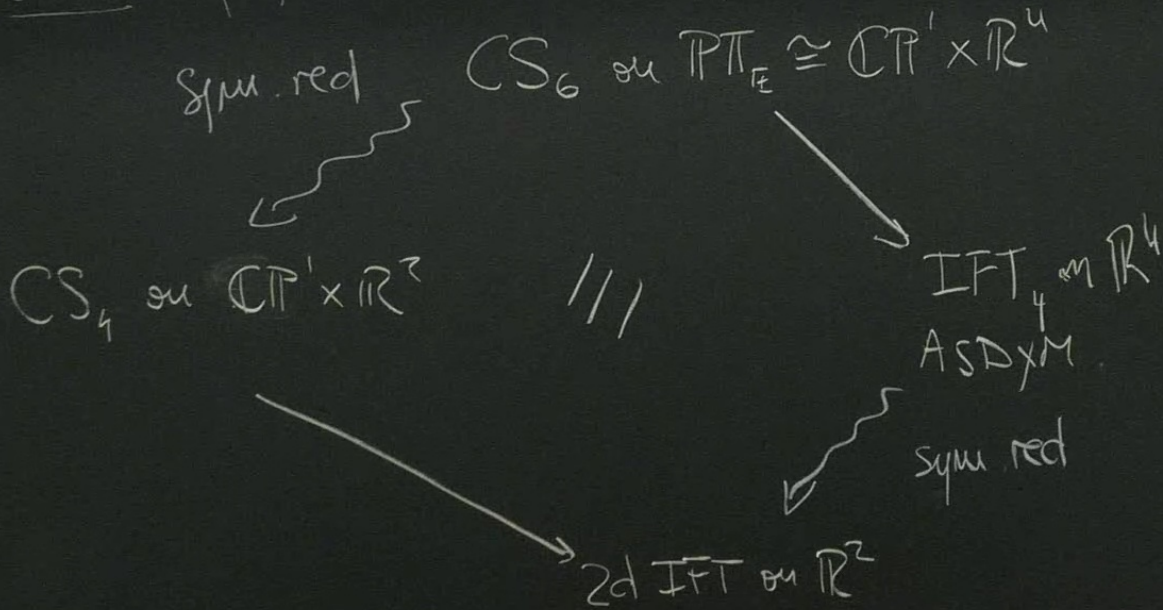 sym. red
CS₆ on ℙ𝕋_E ≅ ℂℙ¹ × ℝ⁴
CS₄ on ℂℙ¹ × ℝ²
///
IFT₄ on ℝ⁴
ASDYM
sym red
2d IFT on ℝ²